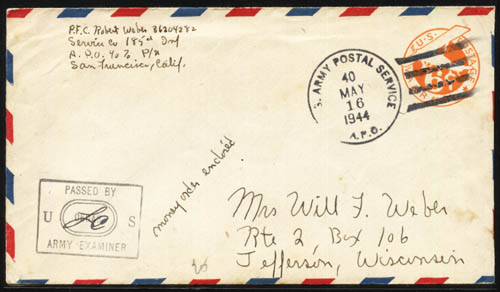 P.F.C. Robert Weber 36204282
Service Co 185th Inf
A.P.O. 40 % P/m
San Francisco, Calif.
U.S. ARMY POSTAL SERVICE
40
MAY
16
1944
A.P.O.
U.S. POSTAGE
6¢
money order enclosed
PASSED BY
U S
ARMY EXAMINER
Mrs Will F. Weber
Rte 2 Box 106
Jefferson, Wisconsin